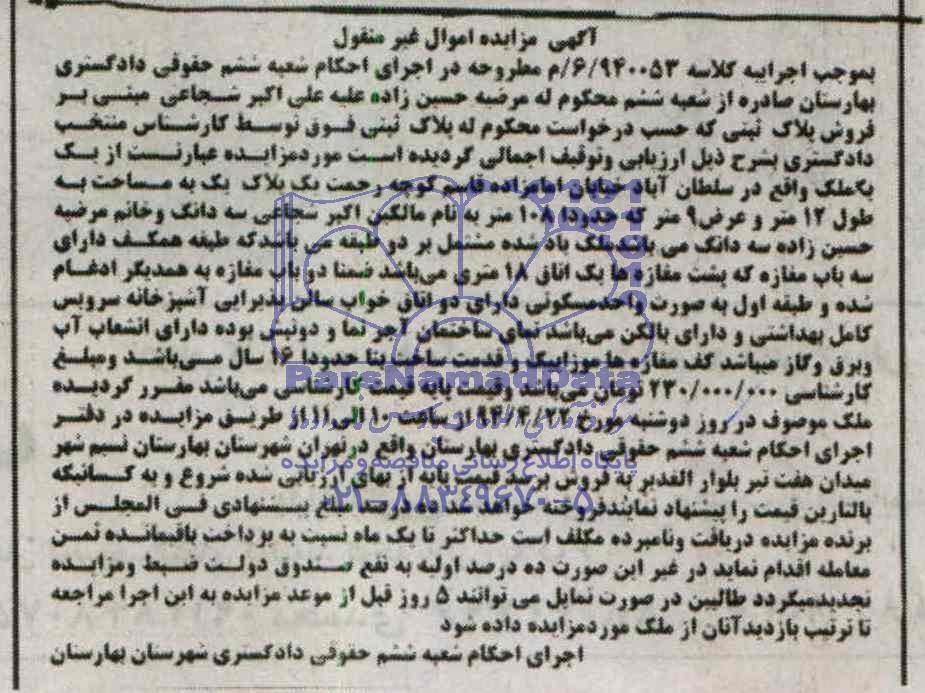 آگهی مزایده اموال غیر منقول
بموجب اجراییه کلاسه ۶/۹۴۰۰۵۳/م مطروحه در اجرای احکام شعبه ششم حقوقی دادگستری
بهارستان صادره از شعبه ششم محکوم له مرضیه حسین زاده علیه علی اکبر شجاعی مبنی بر
فروش پلاک ثبتی که حسب درخواست محکوم له پلاک ثبتی فوق توسط کارشناس منتخب
دادگستری بشرح ذیل ارزیابی وتوقیف اجمالی گردیده است موردمزایده عبارتست از یک
یکملک واقع در سلطان آباد خیابان امامزاده قاسم کوچه رحمت یک پلاک یک به مساحت به
طول ۱۲ متر و عرض۹ متر که حدودا ۱۰۸ متر به نام مالکین اکبر شجاعی سه دانگ وخانم مرضیه
حسین زاده سه دانگ می باشدملک یاد شده مشتمل بر دو طبقه می باشدکه طبقه همکف دارای
سه باب مغازه که پشت مغازه ها یک اتاق ۱۸ متری می‌باشد ضمنا دو باب مغازه به همدیگر ادغام
شده و طبقه اول به صورت واحدمسکونی دارای دو اتاق خواب سالن پذیرایی آشپزخانه سرویس
کامل بهداشتی و دارای بالکن می‌باشد نمای ساختمان آجر نما و دونبش بوده دارای انشعاب آب
وبرق وگاز میباشد کف مغازه ها موزاییک و قدمت ساخت بنا حدودا ۱۶ سال می‌باشد ومبلغ
کارشناسی ۲۳۰/۰۰۰/۰۰۰ تومان می‌باشد وقیمت پایه قیمت کارشناسی می‌باشد مقرر گردیده
ملک موصوف در روز دوشنبه مورخ ۹۴/۴/۲۲ از ساعت ۱۰ الی ۱۱ از طریق مزایده در دفتر
اجرای احکام شعبه ششم حقوقی دادگستری بهارستان واقع درتهران شهرستان بهارستان نسیم شهر
میدان هفت تیر بلوار الغدیر به فروش برسد قیمت پایه از بهای ارزیابی شده شروع و به کسانیکه
بالاترین قیمت را پیشنهاد نمایندفروخته خواهد شد ده درصد مبلغ پیشنهادی فی المجلس از
برنده مزایده دریافت ونامبرده مکلف است حداکثر تا یک ماه نسبت به پرداخت باقیمانده ثمن
معامله اقدام نماید در غیر این صورت ده درصد اولیه به نفع صندوق دولت ضبط ومزایده
تجدیدمیگردد طالبین در صورت تمایل می توانند ۵ روز قبل از موعد مزایده به این اجرا مراجعه
تا ترتیب بازدیدآنان از ملک موردمزایده داده شود
اجرای احکام شعبه ششم حقوقی دادگستری شهرستان بهارستان
ParsNamadData
پایگاه اطلاع رسانی مناقصه و مزایده
۰۲۱-۸۸۳۴۹۶۷۰-۵